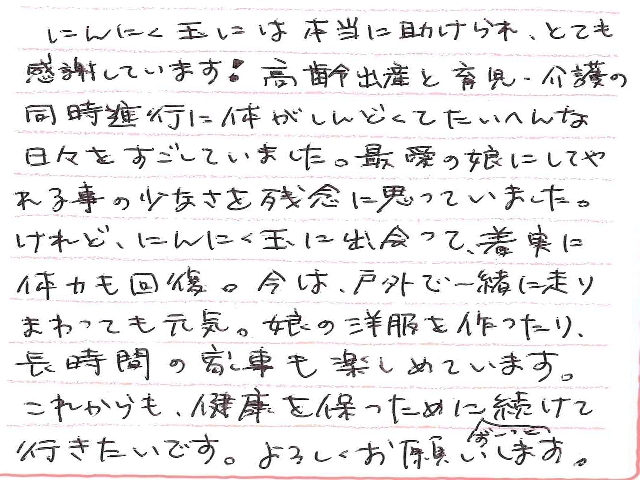 にんにく玉には本当に助けられ、とても
感謝しています!高齢出産と育児・介護の
同時進行に体がしんどくてたいへんな
日々をすごしていました。最愛の娘にしてや
れる事の少なさを残念に思っていました。
けれど、にんにく玉に出会って、着実に
体力も回復。今は、戸外で一緒に走り
まわっても元気。娘の洋服を作ったり、
長時間の家事も楽しめています。
これからも、健康を保つためにずーっと続けて
行きたいです。よろしくお願いします。